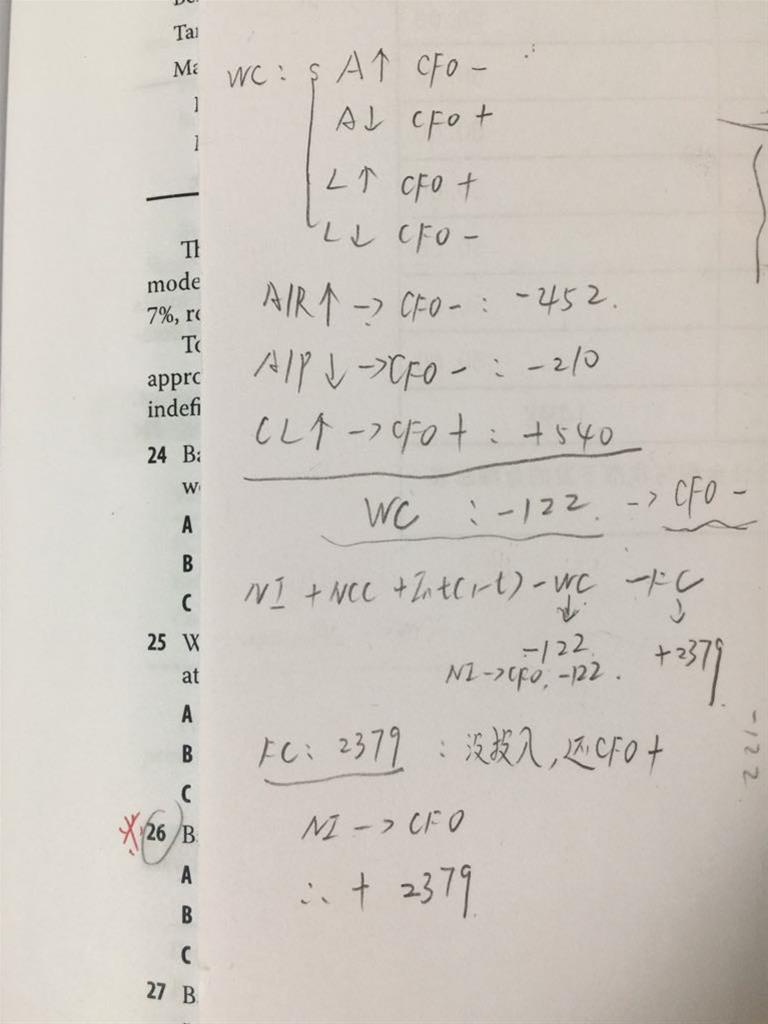 Tar
Ma
Th
mode
7%, re
To
appro
indefi
24 Ba
w
A
B
C
25 W
at
A
B
C
26 B
A
B
C
27 B
WC: A↑ CFO -
A↓ CFO +
L↑ CFO +
L↓ CFO -
A/R↑ -> CFO - : -452.
A/P↓ -> CFO - : -210
CL↑ -> CFO + : +540
WC : -122. -> CFO -
NI + NCC + Int(1-t) - WC - FC
↓ ↓
-122. +2379
NI -> CFO, -122.
FC: 2379 : 没投入,还CFO+
NI -> CFO
∴ + 2379
221-